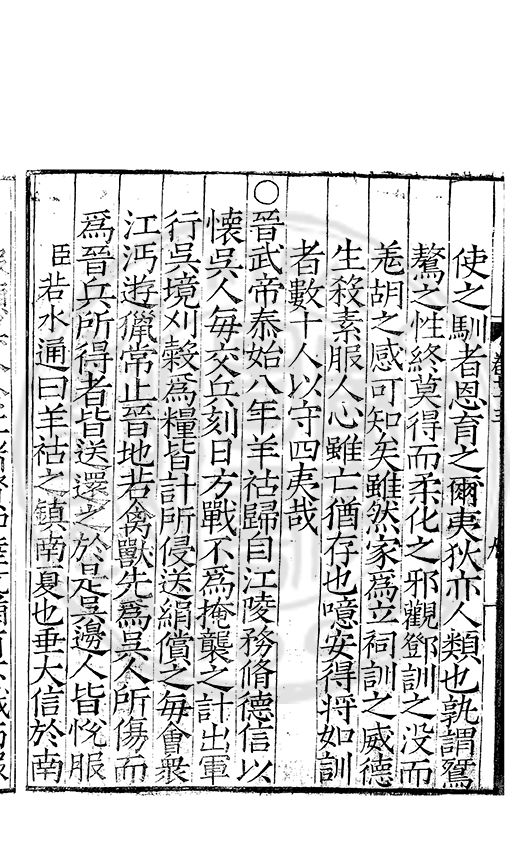 使之馴者恩育之爾夷狄亦人類也孰謂鷙
驁之性終莫得而柔化之邪觀鄧訓之没而
羗胡之感可知矣雖然家為立祠訓之威德
生殺素服人心雖亡猶存也噫安得將如訓
者數十人以守四夷哉
○晉武帝泰始八年羊祜歸自江陵務脩德信以
懷吳人每交兵刻日方戰不為掩襲之計出軍
行吳境刈穀為糧皆計所侵送絹償之每會衆
江沔遊獵常止晉地若禽獸先為吳人所傷而
為晉兵所得者皆送還之於是吳邊人皆恱服
臣若水通曰羊祜之鎮南夏也垂大信於南